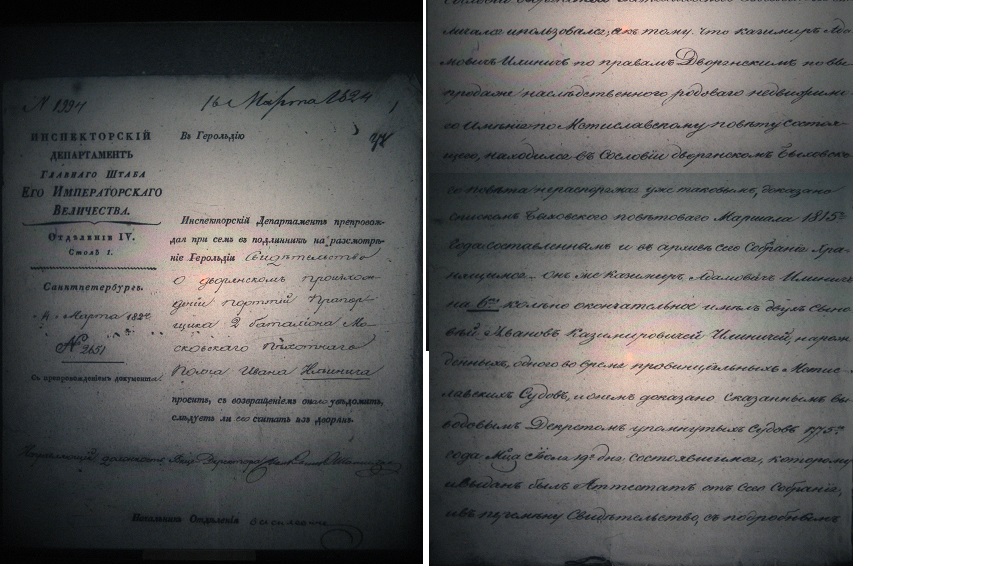 N 1394
16 Марта 1824
ИНСПЕКТОРСКІЙ
ДЕПАРТАМЕНТЪ
ГЛАВНАГО ШТАБА
ЕГО ИМПЕРАТОРСКАГО
ВЕЛИЧЕСТВА.
Отдѣленія IV.
Столъ 1.
Санктпетербургъ.
Марта 182
№ 2651
Съ препровожденіемъ документа
Въ Герольдію
Инспекторскій Департаментъ препровож-
дая при семъ въ подлинникѣ на разсмотрѣ-
ніе Герольдіи Свидѣтельство
о дворянскомъ происхож-
деніи портупей Прапор-
щика 2 баталіона Мо-
сковскаго пѣхотнаго
Полка Ивана Илинича
проситъ, съ возвращеніемъ онаго увѣдомить,
слѣдуетъ ли его считать изъ дворянъ.
Начальникъ Отдѣленія
что казимиръ Ада
мовичъ Илиничъ по правамъ Дворянскимъ по вы
продаже наслѣдственнаго родоваго недвижими
го Имѣнія по Мстиславскому повѣту состоя-
щаго, находился въ Сословіи дворянскомъ Быховска
го повѣта уже таковымъ, доказано
спискомъ Быховскаго повѣтоваго Маршала 1815го
года составленнымъ и въ архивѣ сего Собранія хра-
нящимся онъ же Казимиръ Адамовичъ Илиничъ
на колѣно окончательно имѣлъ двухъ сыно
вей Ивановъ Казимировичей Илиничей, нарож
денныхъ, одного во время провинціальныхъ Мстис
лавскихъ Судовъ, и онымъ доказано сказаннымъ вы
водовымъ Декретомъ упомянутыхъ Судовъ 1775го
года Мца Іюля 19 дня состоявшимся, которому
и выданъ былъ Аттестатъ отъ сего Собранія,
Свидѣтельство, съ подробнымъ